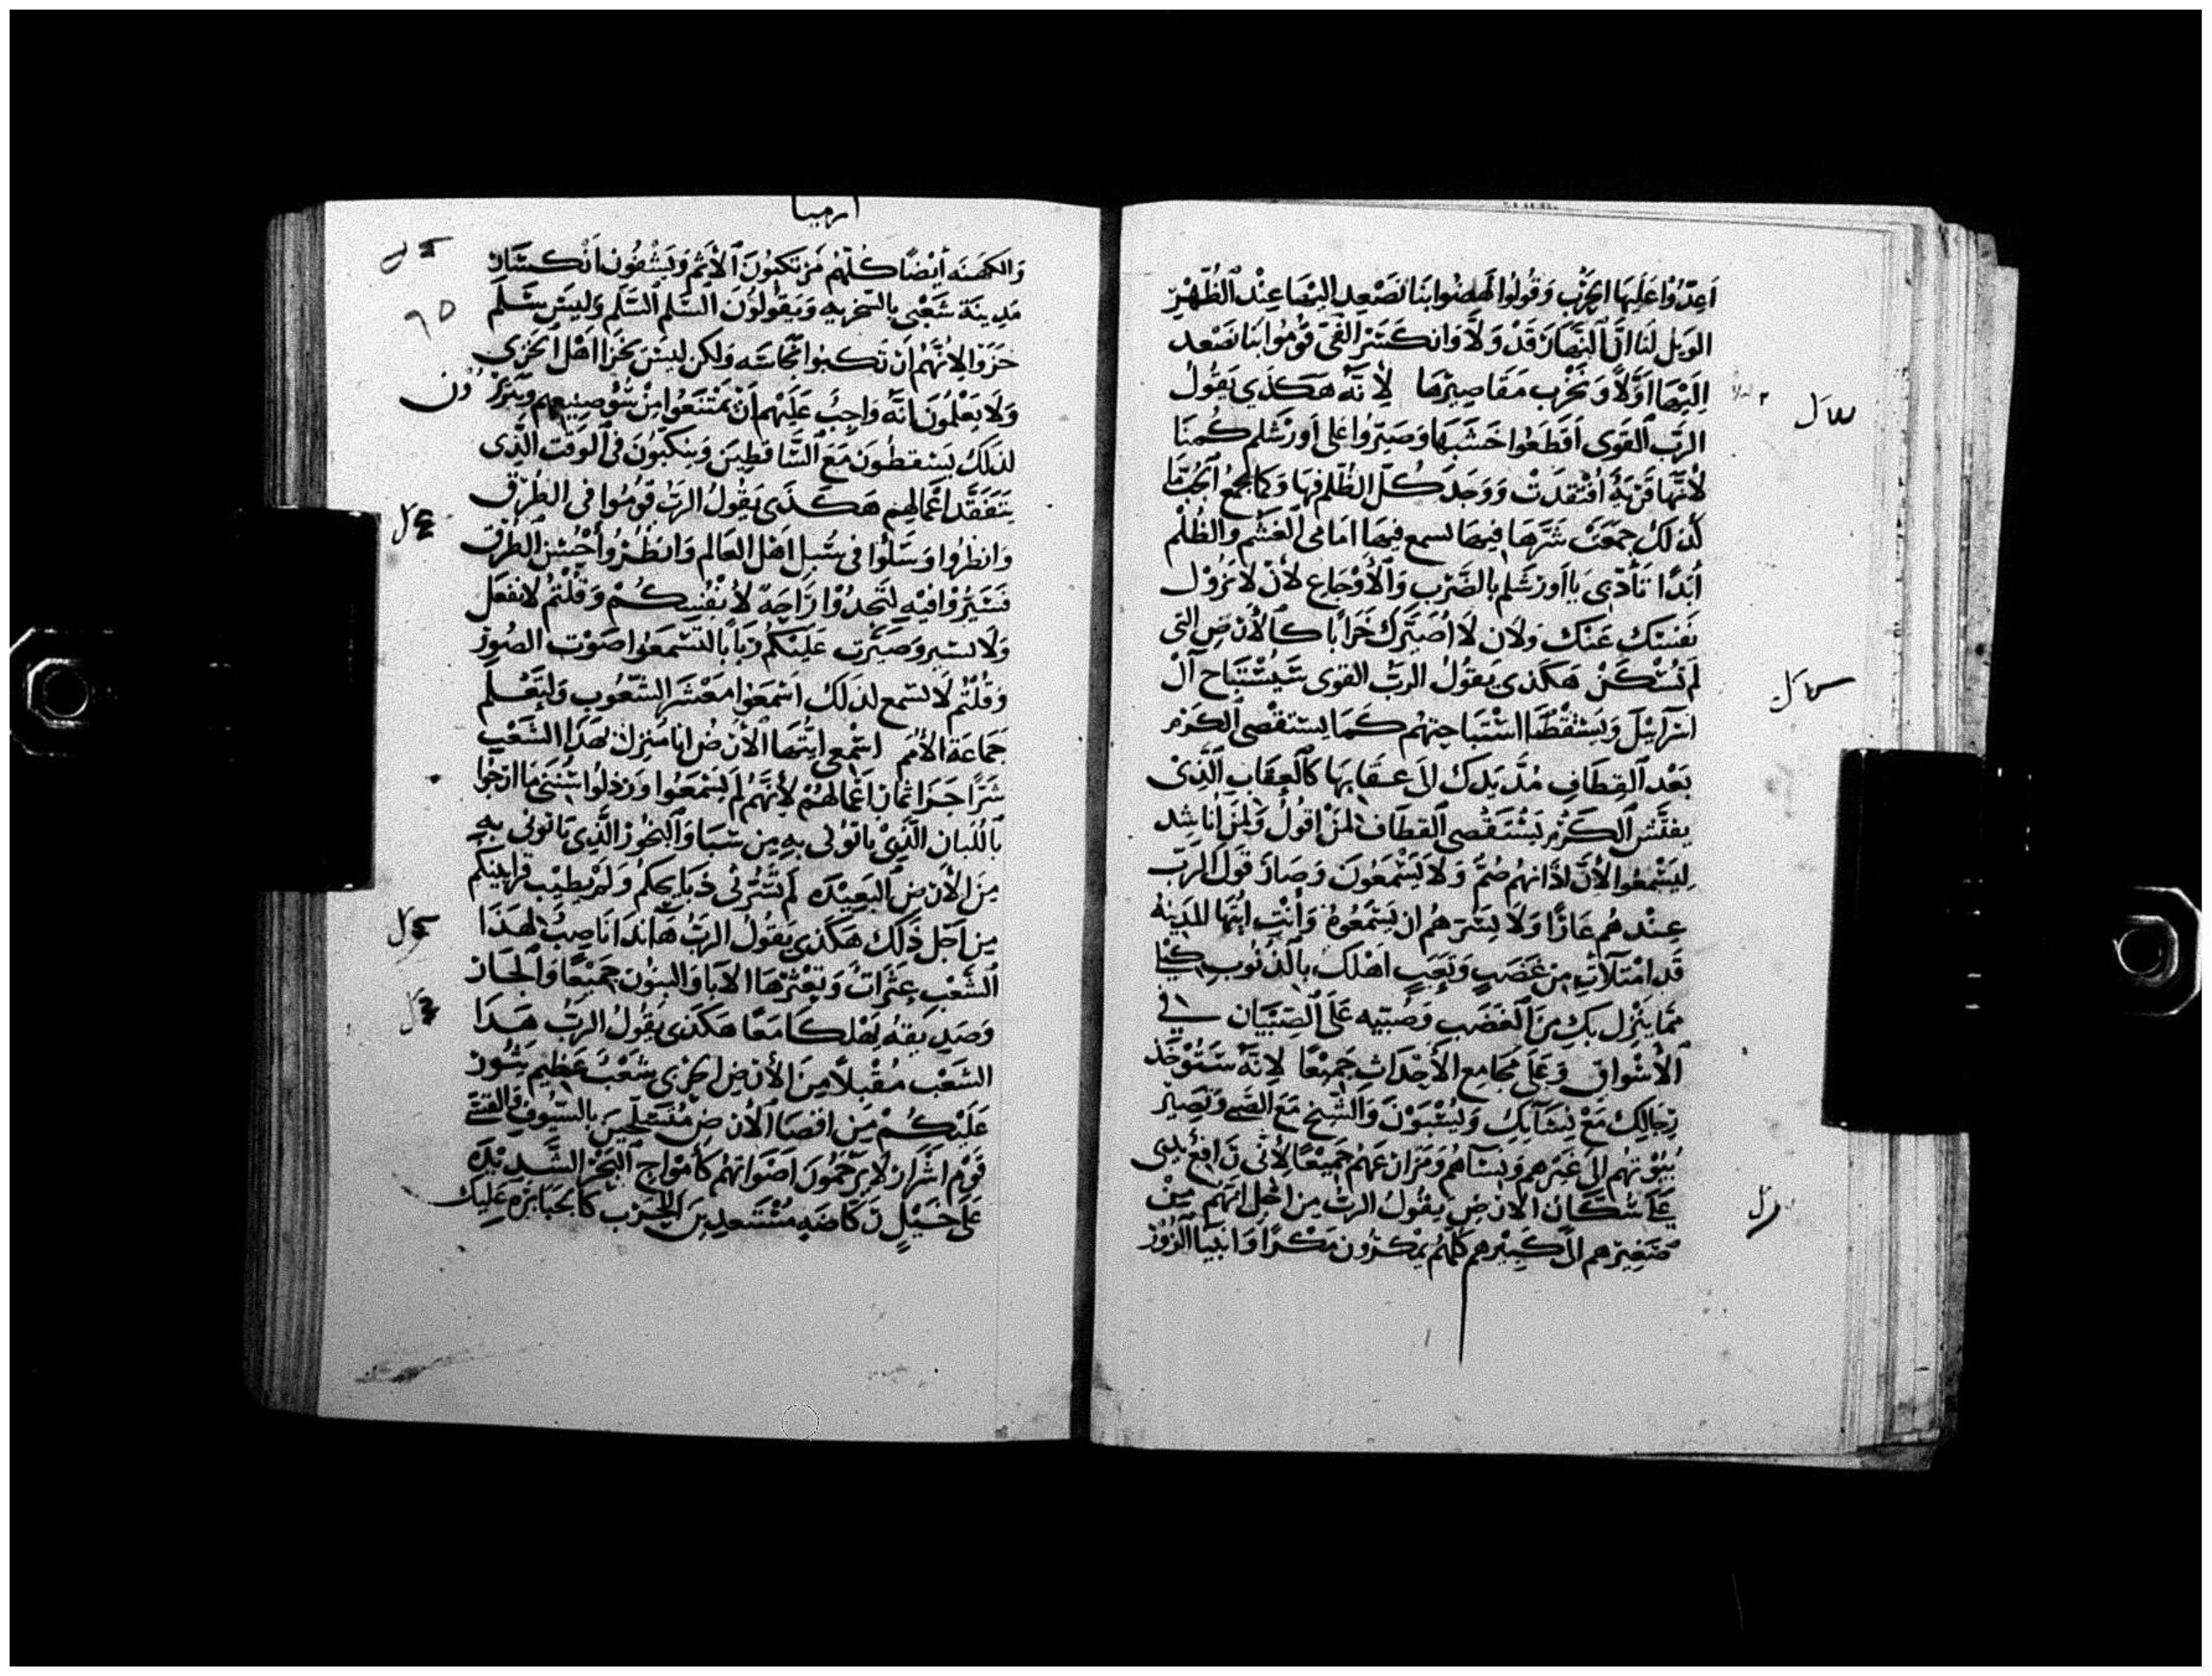 اعدوا عليها الحرب وقولوا انهضوا بنا نصعد اليها عند الظهر
الويل لنا ان النهار قد ولا وانكسر الفى قوموا بنا نصعد
اليها اولا ونخرب مقاصيرها لانه هكذى يقول
الرب القوى اقطعوا خشبها وصيروا على اورشلم كمنا
لانها قرية افتقدت ووجد كل الظلم فيها وكما يجمع الجب
كذلك جمعت شرها فيها يسمع فيها امامى الغشم والظلم
ابدا تأدبى يا اورشلم بالضرب والاوجاع لان لا تزول
نفسى عنك ولان لا اصيرك خرابا كالارض التى
لم تسكن هكذى يقول الرب القوى سيستباح ال
اسرائيل ويستقضا استباحتهم كما يستقصى الكرم
بعد القطاف يدك الى عقابها كالعقاب الذى
يفتش الكرم يستقصى القطاف لمن اقول ولمن اناشد
ليسمعوا لان اذانهم صم ولا يسمعون وصار قول الرب
عندهم عارا ولا يسرهم ان يسمعوه وانت ايتها المدينه
قد امتلات من غضب وتعب اهلك بالذنوب
مما ينزل بك من الغضب وصبيه على الصبيان فى
الاسواق وعلى مجامع الاحداث جميعا لانه ستوخذ
رجالك مع نسايك ويسبون والشيخ مع الصبى وتصير
بيوتهم الى غيرهم ونساهم ومزارعهم جميعا لانى رافع يدى
على سكان الارض يقول الرب من اجل انهم من
صغيرهم الى كبيرهم كلهم يمكرون مكرا وانبيا الزور
ارميا
والكهنه ايضا كلهم مرتكبون الاثم ويشفون انكسار
مدينة شعبى بالسخريه ويقولون السلم السلم وليس سلم
خزوا لانهم ارتكبوا نجاسه ولكن ليس بخزا اهل الخزى
ولا يعلمون انه واجب عليهم ان يمتنعوا من سو صنيعهم
لذلك يسقطون مع الساقطين وينكبون فى الوقت الذى
يتفقد اعمالهم هكذى يقول الرب قوموا فى الطرق
وانظروا وسلوا فى سبل اهل العالم وانظروا احسن الطرق
فسيروا فيه لتجدوا راحة لانفسكم وقلتم لا نفعل
ولا نسير وصيرت عليكم ربابا لتسمعوا صوت الصور
وقلتم لا نسمع لذلك اسمعوا معشر الشعوب ولتعلم
جماعة الامم اسمعى ايتها الارض انا منزل بهذا الشعب
شرا جزا ثمار اعمالهم لانهم لم يسمعوا ورذلوا سنتى ما ارجوا
باللبان الذى ياتونى به من سبا والبخور الذى ياتونى به
من الارض البعيده لم تسرنى ذبايحكم ولم يطيب قرابينكم
من اجل ذلك هكذى يقول الرب هانذا انا صب لهذا
الشعب عثرات وتعثرها الابا والبنون جميعا والجار
وصديقه يهلكا معا هكذى يقول الرب هذا
الشعب مقبلا من الارض الجربى شعب عظيم يثور
عليكم من اقصا الارض متسلحين بالسيوف والقسى
قوم اشرار لا يرحمون اصواتهم كامواج البحر الشديده
على خيل ركاضه مستعدين للحرب كالجبابره عليك